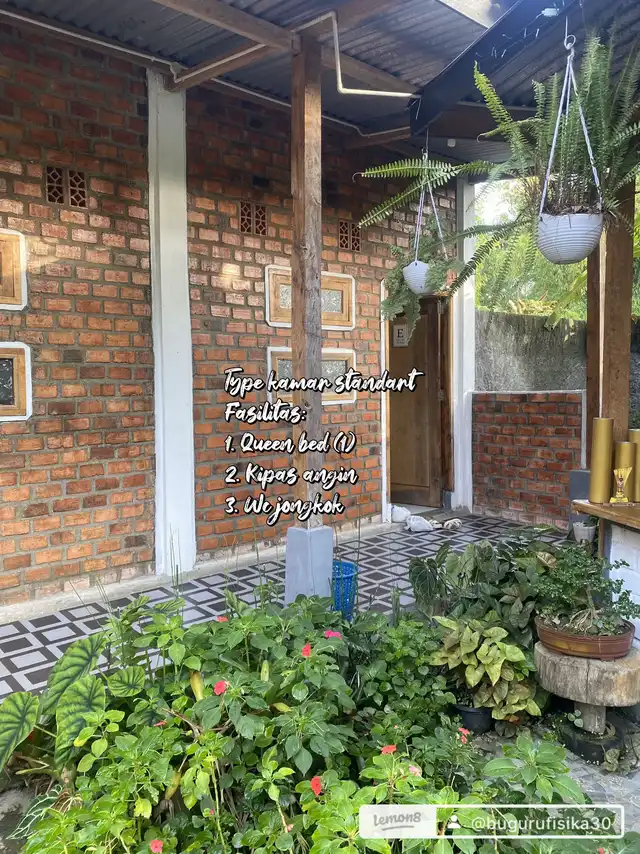 E
Type kamar standart
Fasilitas:
1. Queen bed (1)
2. Kipas angin
3. Wc jongkok
lemon8 @bugurufisika30